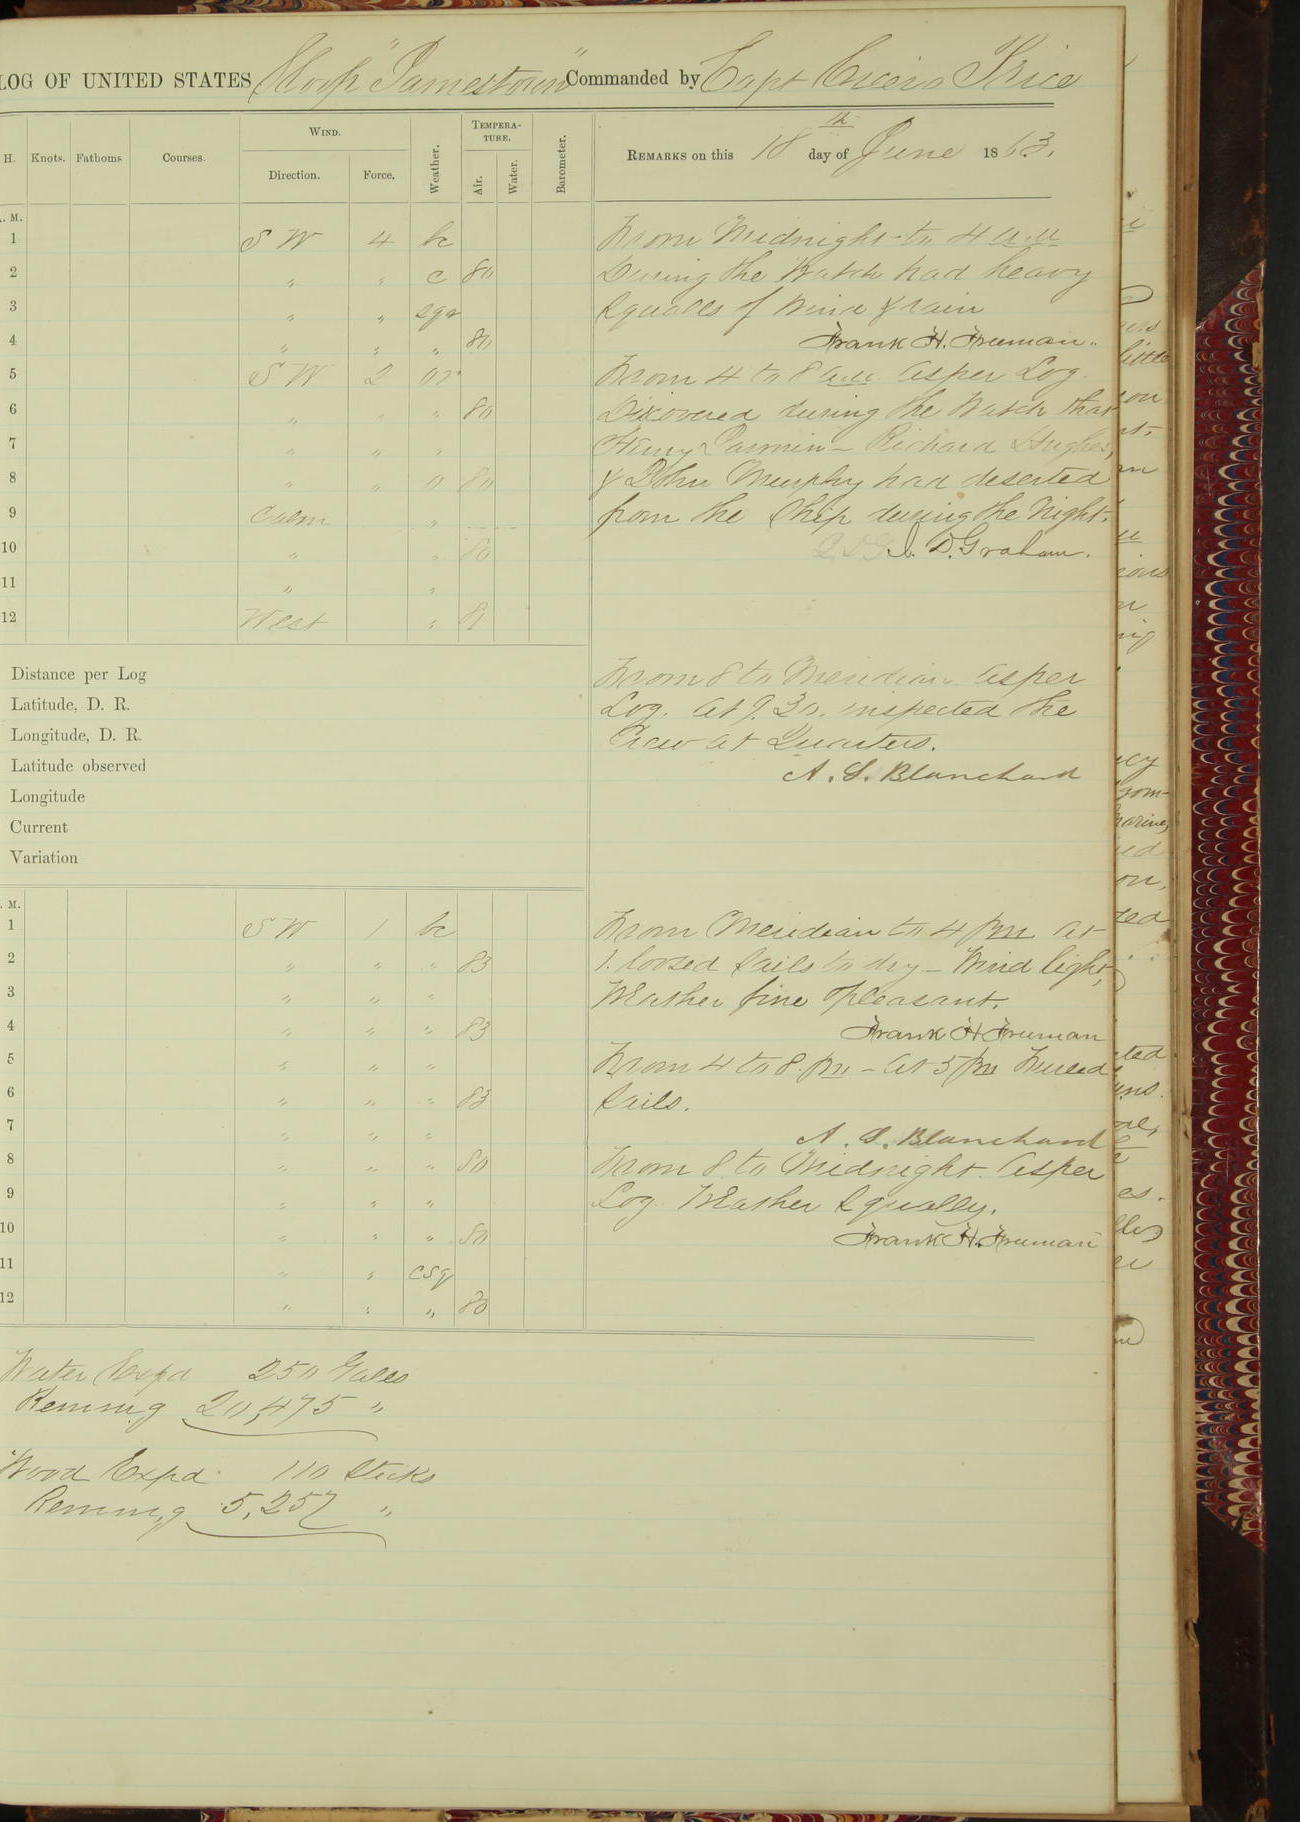 LOG OF UNITED STATES Sloop "Jamestown" Commanded by Capt Cicero Price
H. Knots. Fathoms. Courses. WIND. Direction. Force. Weather. TEMPERATURE. Air. Water. Barometer. REMARKS on this 18th day of June 1863.
. M.
1 S W 4 bc From Midnight to 4 a.m
2 " " c 80 During the Watch had heavy
3 " " sqr Squalls of Wind & rain
4 " " " 80 Frank H. Freeman.
5 S W 2 or From 4 to 8 a.m as per Log.
6 " " " 80 Discovered during the Watch that
7 " " " Henry – Richard Hughes,
8 " " " 80 & John Murphy had deserted
9 Calm " from the Ship during the Night.
10 " " 80 D. Graham.
11 " "
12 West " 81
Distance per Log From 8 to Meridian as per
Latitude, D. R. Log. At 9.30. inspected the
Longitude, D. R. Crew at Quarters.
Latitude observed A. S. Blanchard
Longitude
Current
Variation
. M.
1 S W 1 bc From Meridian to 4 PM At
2 " " " 83 1. loosed Sails to dry – Wind light,
3 " " " Weather fine & pleasant.
4 " " " 83 Frank H Freeman
5 " " " From 4 to 8. PM – At 5 PM Furled
6 " " " 83 Sails.
7 " " " A. S. Blanchard
8 " " " 80 From 8 to Midnight. as per
9 " " " Log. Weather Squally.
10 " " " 80 Frank H. Freeman
11 " " csq
12 " " " 80
Water Expd 250 Galls
Remng 20,475 "
Wood Expd 110 Sticks
Remng 5,257 "